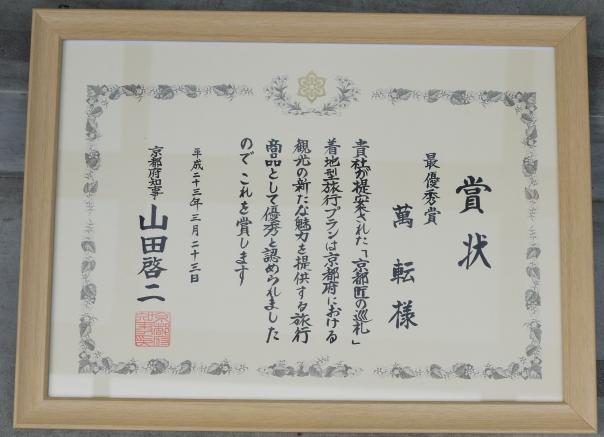 賞状
最優秀賞
萬転様
貴社が提案された「京都匠の巡礼」
着地型旅行プランは京都府における
観光の新たな魅力を提供する旅行
商品として優秀と認められました
のでこれを賞します
平成二十三年三月二十三日
京都府知事 山田啓二